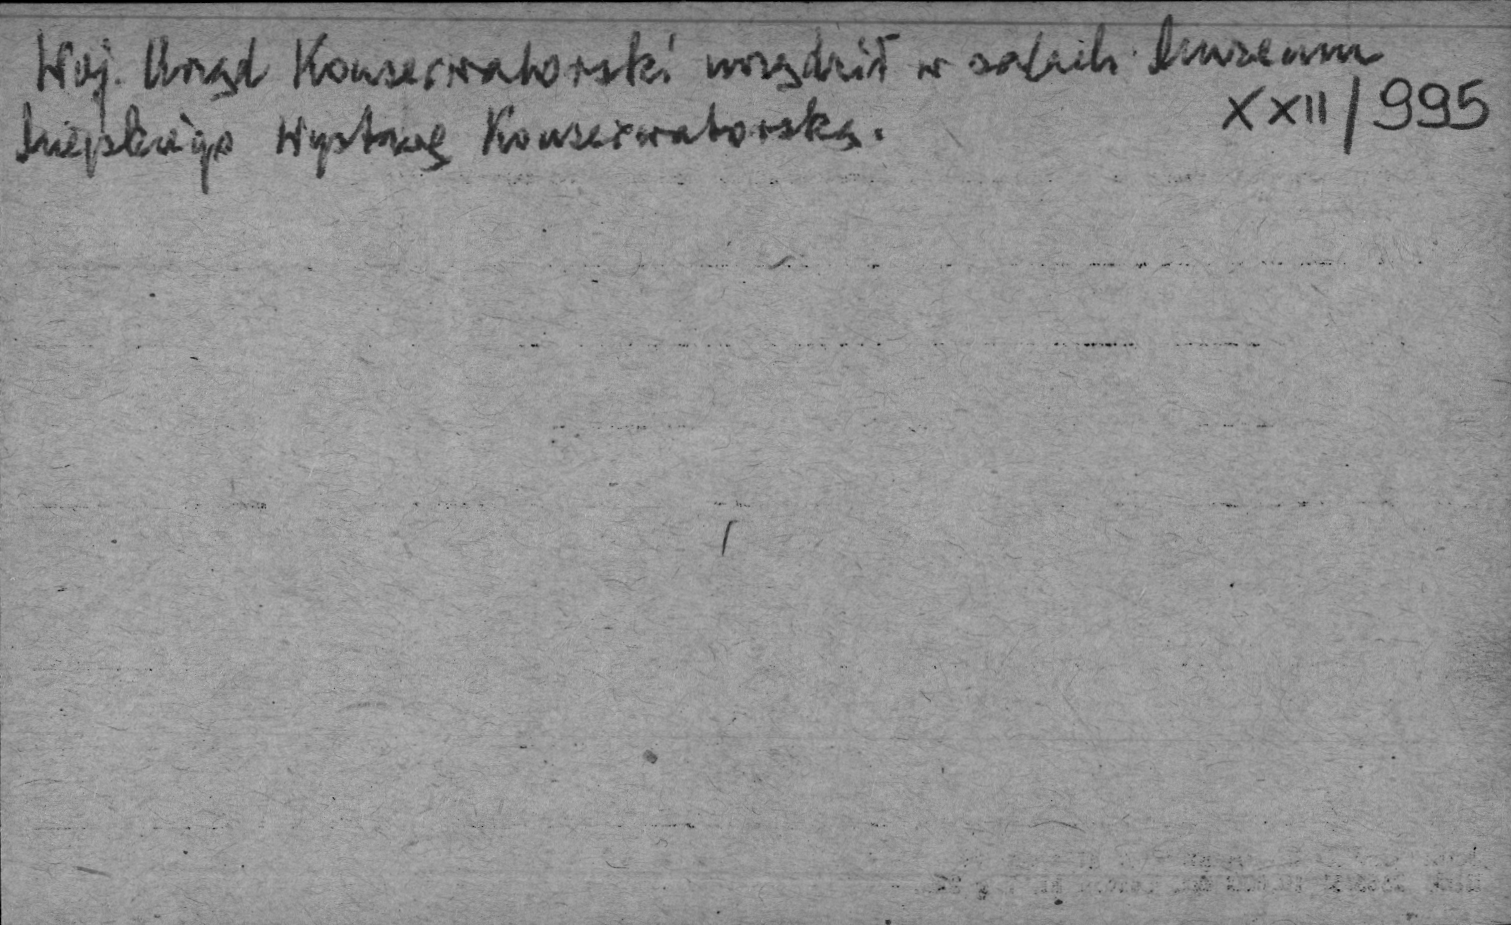 Woj. Urząd Konserwatorski urządził w salach Muzeum
XXII/995
Miejskiego Wystawę Konserwatorską.